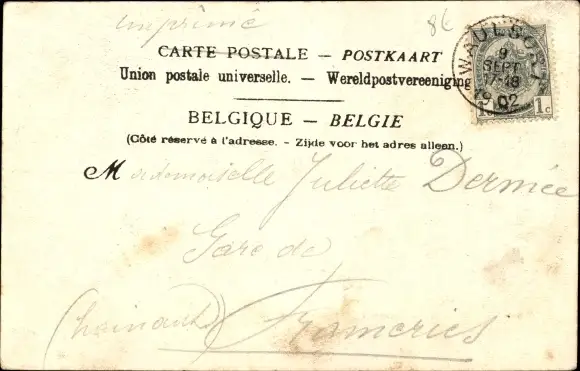 imprimé
8€
CARTE POSTALE — POSTKAART
Union postale universelle. — Wereldpostvereeniging
BELGIQUE — BELGIE
(Côté réservé à l'adresse. - Zijde voor het adres alleen.)
WAULSORT
9
SEPT
17-18
1902
1c
Mademoiselle Juliette Dermée
Gare de
(hainaut) Frameries